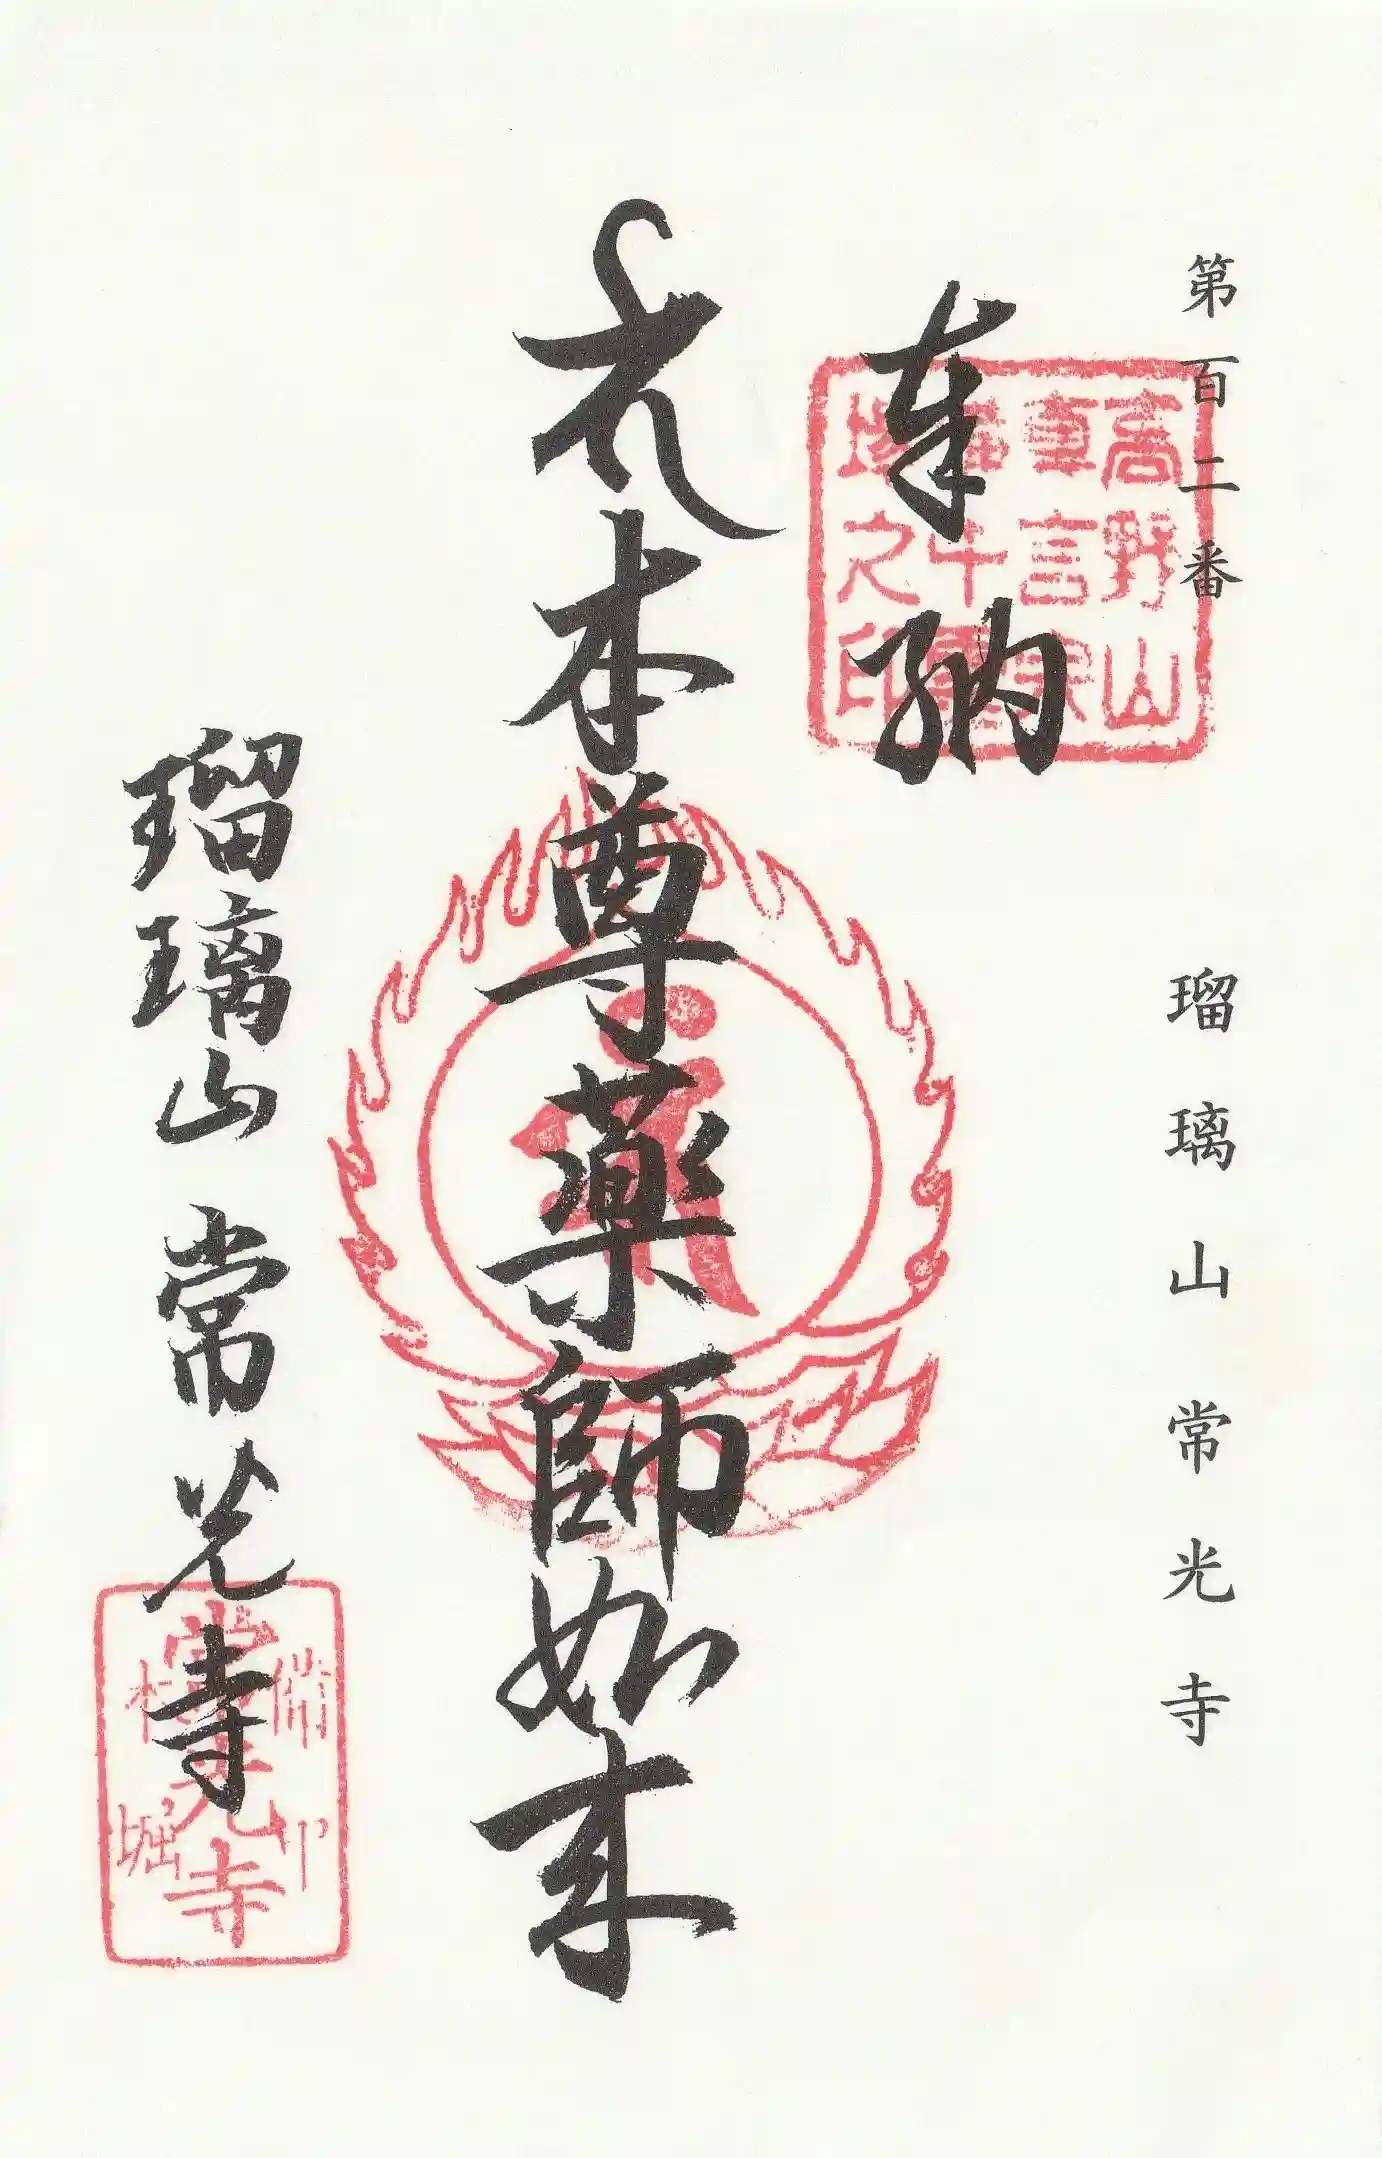 第百二番 瑠璃山常光寺
高野山
真言宗
場之印
奉納
本尊薬師如来
瑠璃山 常光寺
常光寺